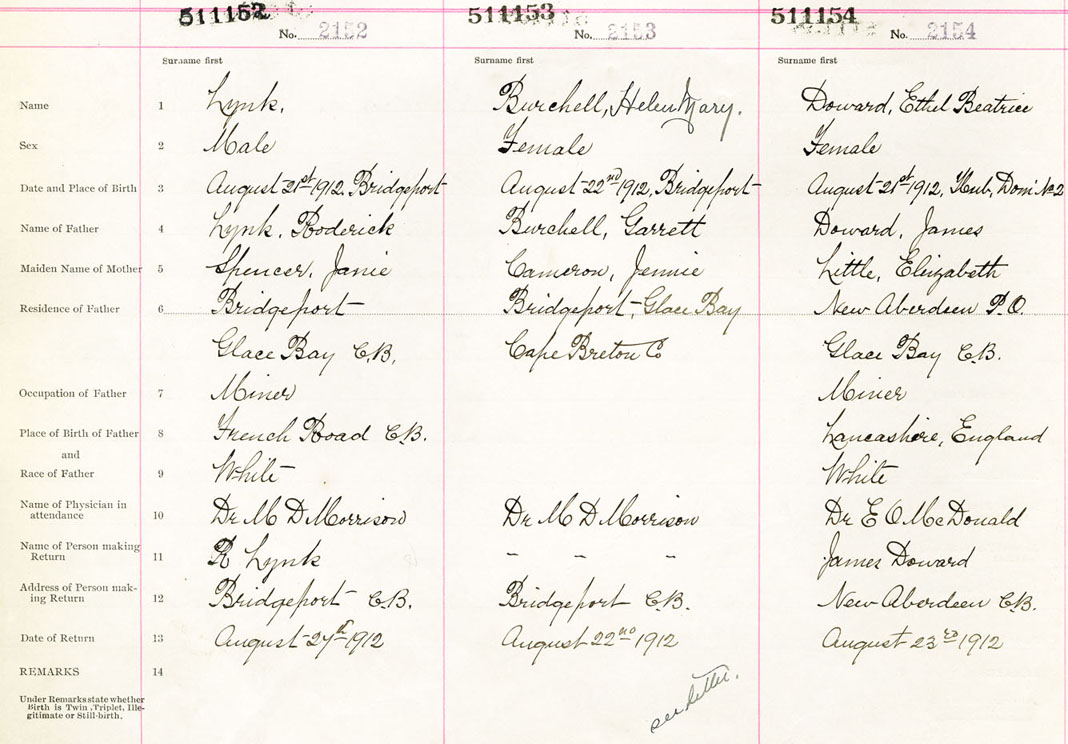 511152 511153 511154
No. 2152 No. 2153 No. 2154
Surname first Surname first Surname first
Name 1 Lynk, Burchell, Helen Mary. Doward, Ethel Beatrice
Sex 2 Male Female Female
Date and Place of Birth 3 August 21st 1912, Bridgeport August 22nd 1912, Bridgeport August 21st 1912, Hub, Dom. No 2
Name of Father 4 Lynk, Roderick Burchell, Garrett Doward, James
Maiden Name of Mother 5 Spencer, Janie Cameron, Jennie Little, Elizabeth
Residence of Father 6 Bridgeport Bridgeport, Glace Bay New Aberdeen P.O.
Glace Bay C.B. Cape Breton Co Glace Bay C.B.
Occupation of Father 7 Miner Miner
Place of Birth of Father 8 French Road C.B. Lancashire, England
and
Race of Father 9 White White
Name of Physician in
attendance 10 Dr M D Morrison Dr M D Morrison Dr E O McDonald
Name of Person making
Return 11 R Lynk - - - James Doward
Address of Person mak-
ing Return 12 Bridgeport C.B. Bridgeport C.B. New Aberdeen C.B.
Date of Return 13 August 27th 1912 August 22nd 1912 August 23rd 1912
REMARKS 14
see letter.
Under Remarks state whether
Birth is Twin, Triplet, Ille-
gitimate or Still-birth.